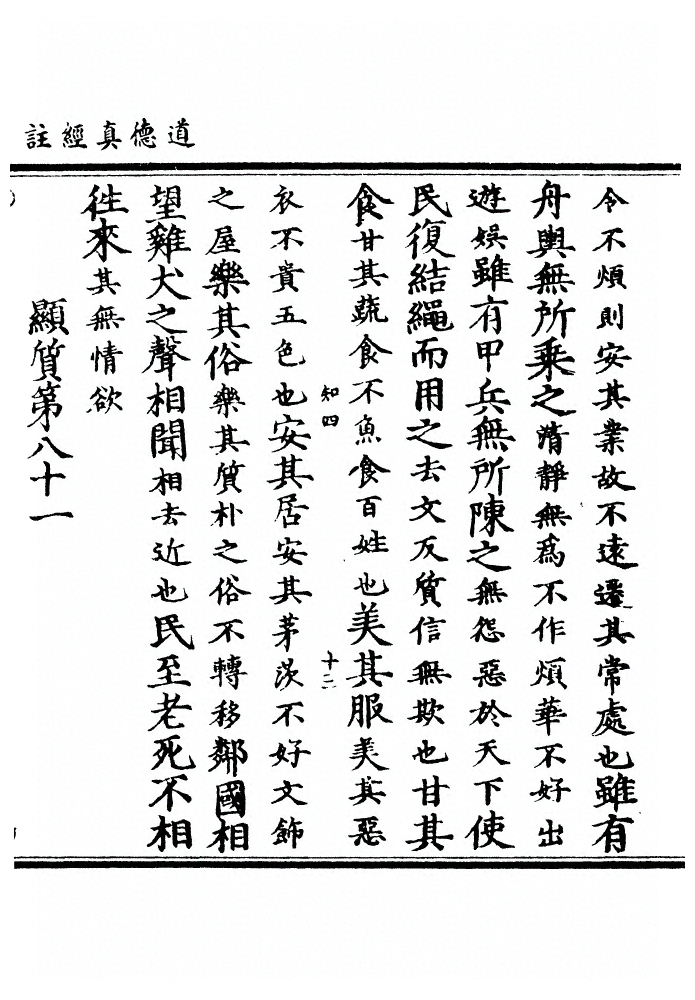 道德真經註
令不煩則安其業故不遠遷其常處也雖有
舟輿無所乘之清靜無為不作煩華不好出
遊娛雖有甲兵無所陳之無怨惡於天下使
民復結繩而用之去文反質信無欺也甘其
食甘其蔬食不魚食百姓也美其服美其惡
知四 十三
衣不貴五色也安其居安其茅茨不好文飾
之屋樂其俗樂其質朴之俗不轉移鄰國相
望雞犬之聲相聞相去近也民至老死不相
往來其無情欲
顯質第八十一